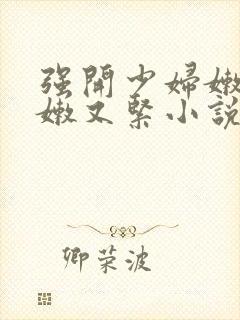 强開少婦嫩
嫩又緊小說
卿荣波